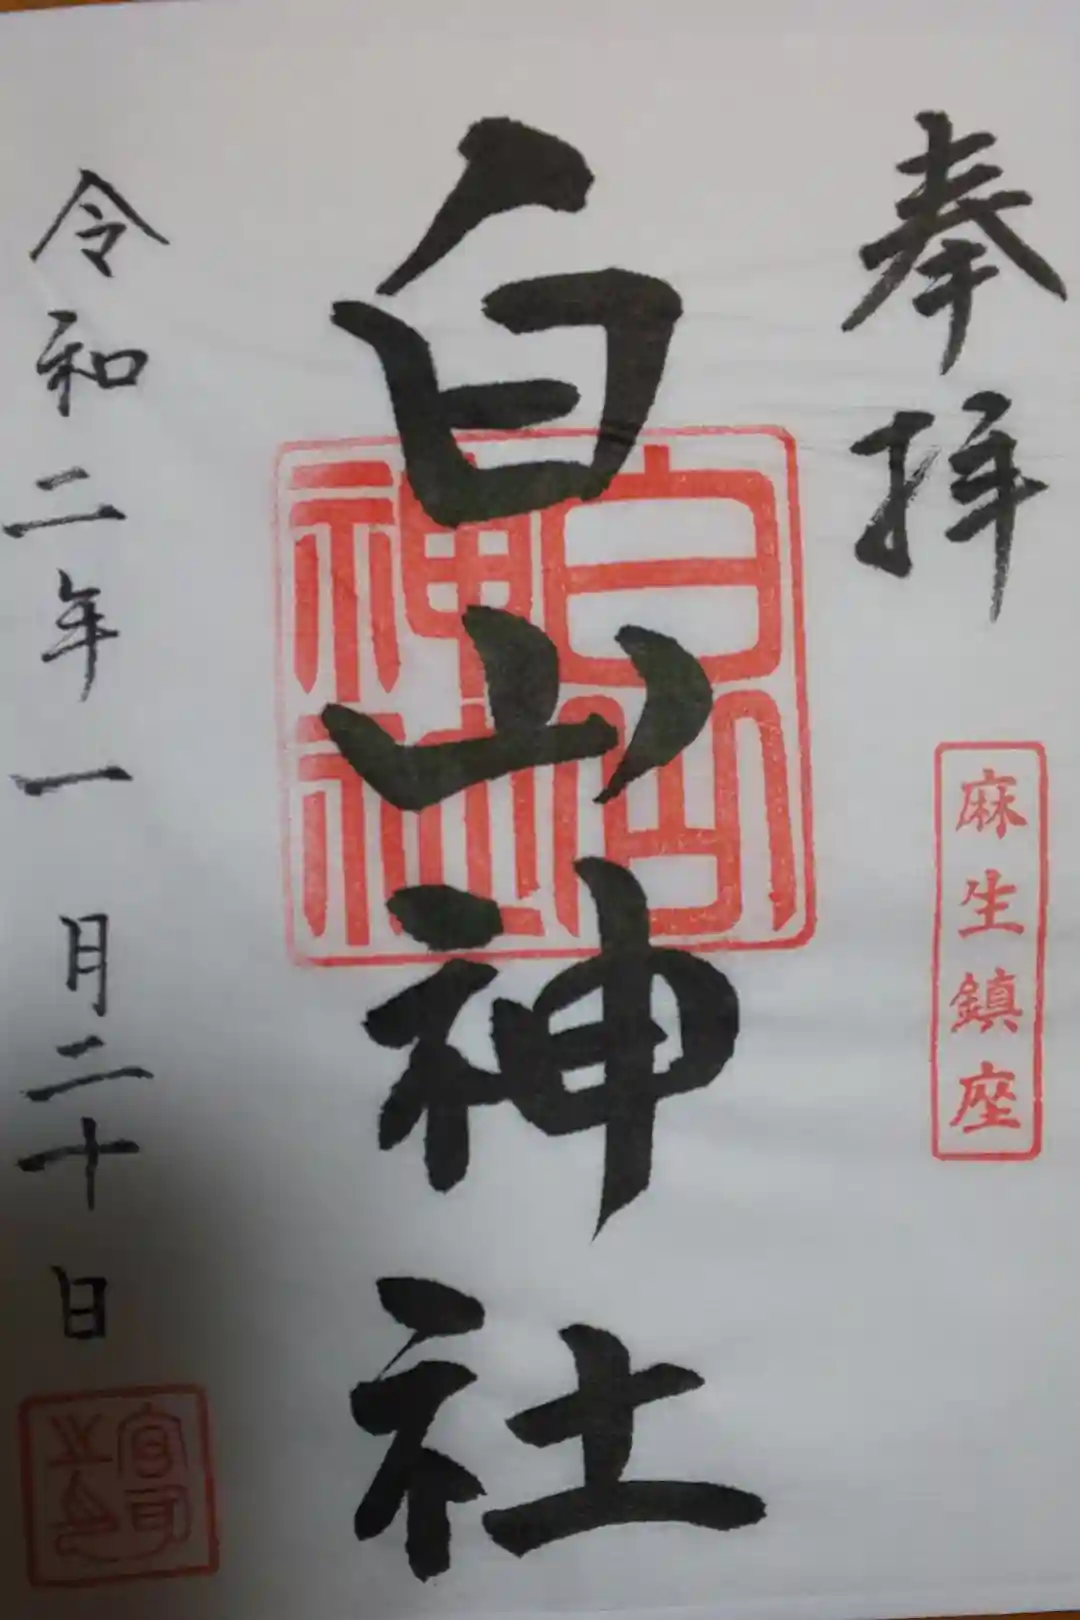 奉拝
麻生鎮座
白山神社
白山神社
令和二年一月二十日
宮司之印